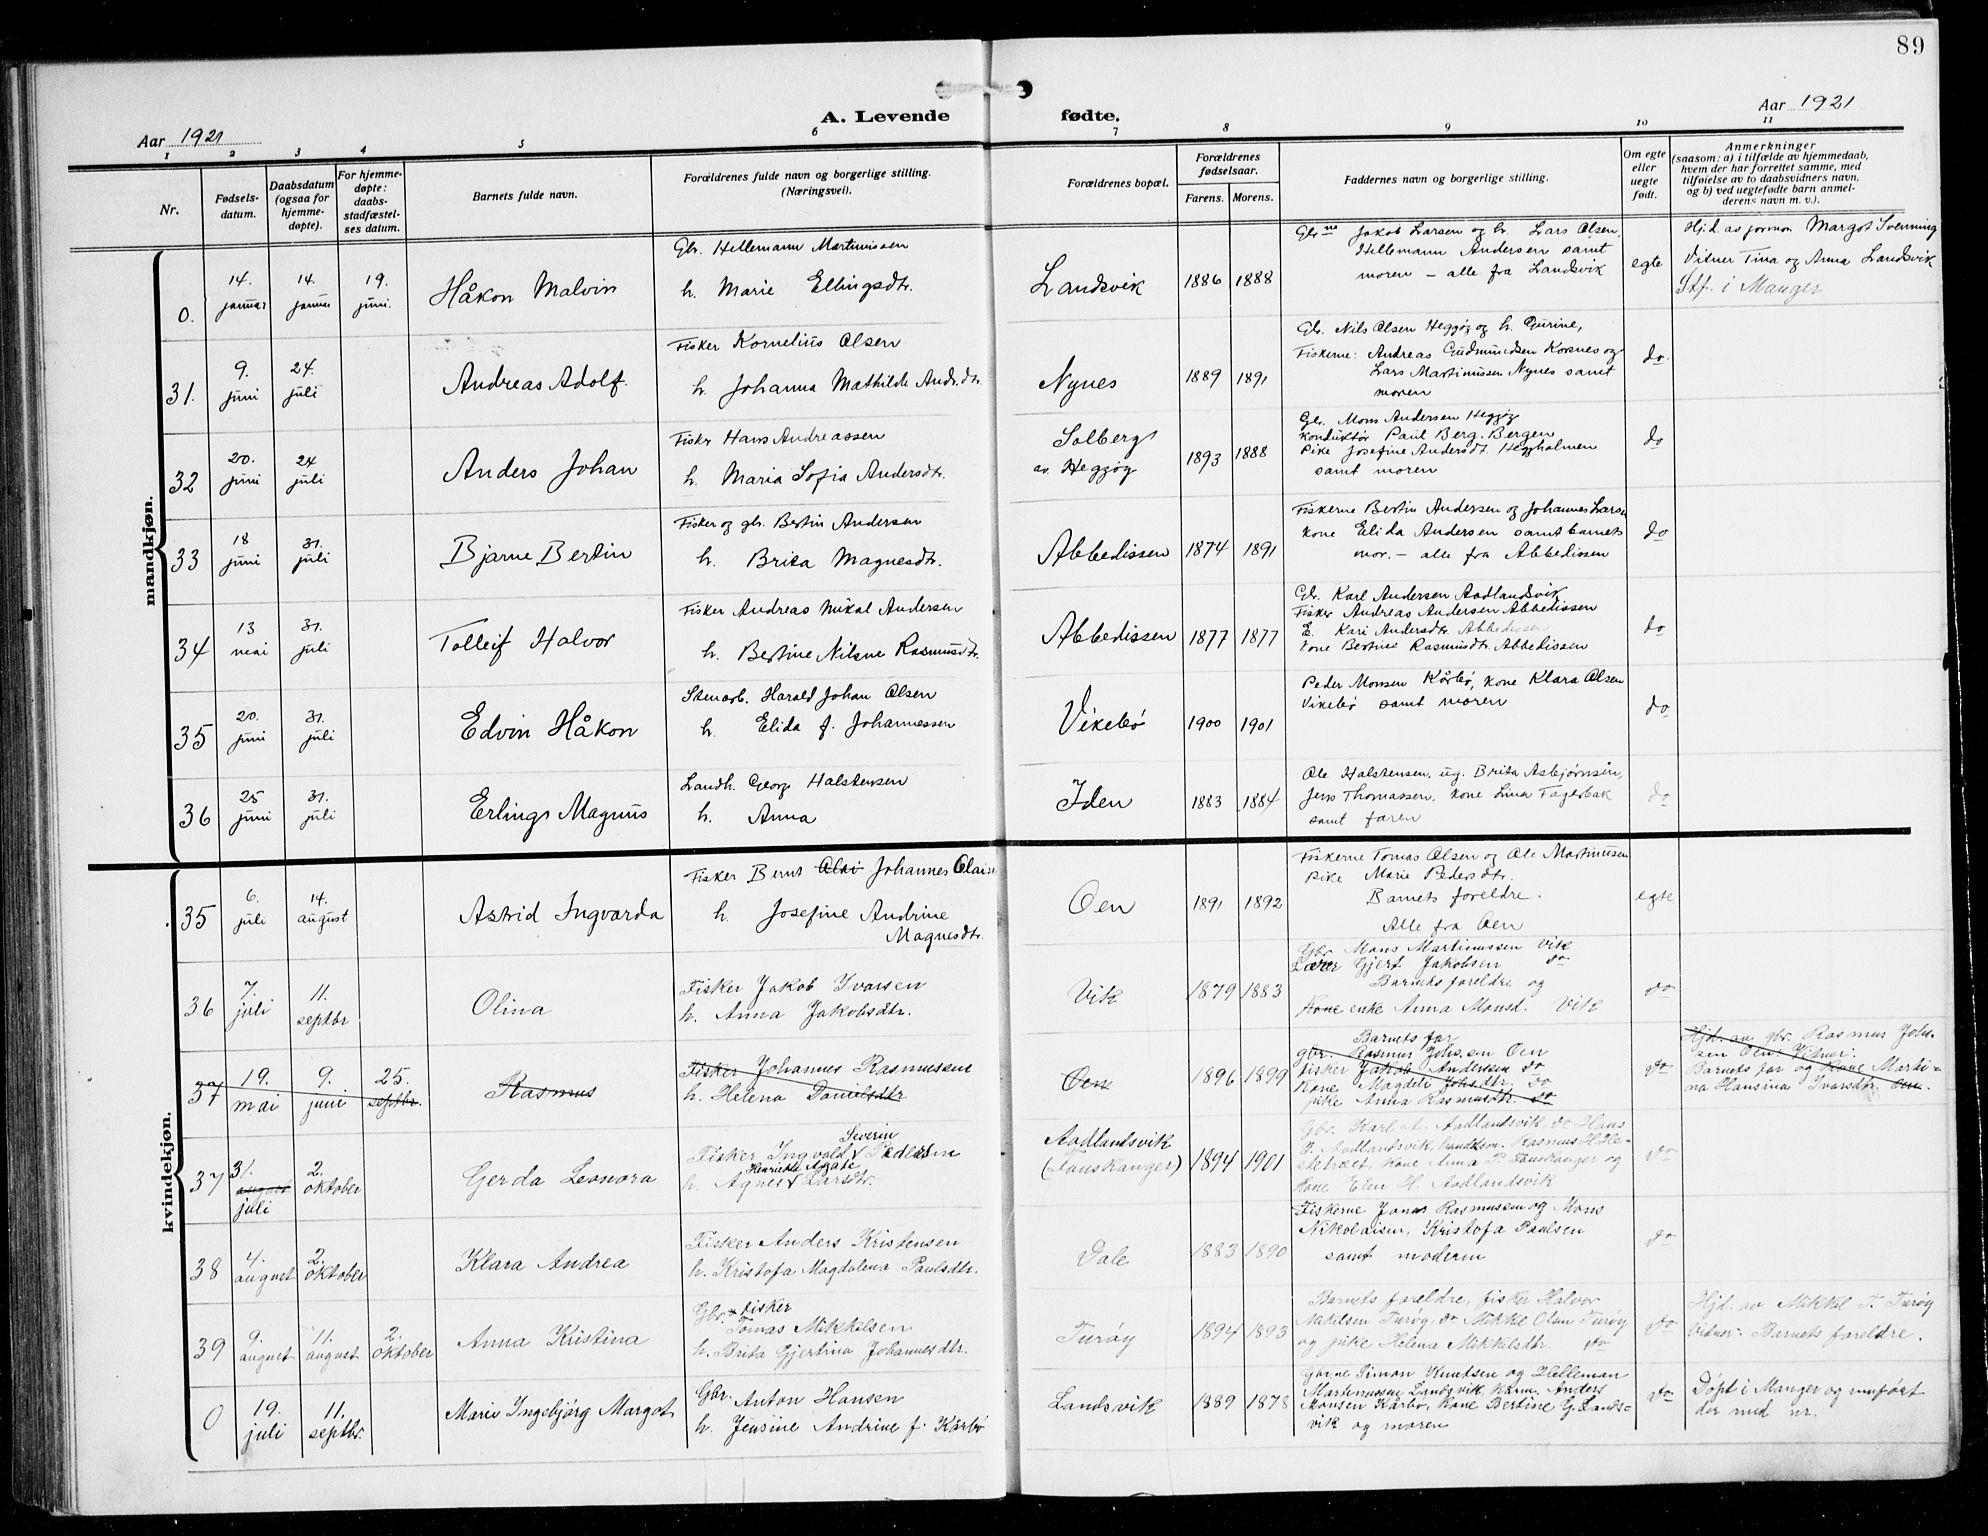 89
Aar 1921
A. Levende fødte.
Aar 1921
1 2 3 4 5 6 7 8 9 10 11
Nr.
Fødsels-
datum.
Daabsdatum
(ogsaa for
hjemme-
døpte).
For hjemme-
døpte:
daabs-
stadfæstel-
ses datum.
Barnets fulde navn.
Forældrenes fulde navn og borgerlige stilling.
(Næringsvei).
Forældrenes bopæl.
Forældrenes
fødselsaar.
Farens. Morens.
Faddernes navn og borgerlige stilling.
Om egte
eller
uegte
født.
Anmerkninger
(saasom: a) i tilfælde av hjemmedaab,
hvem der har forrettet samme, med
tilføielse av to daabsvidners navn,
og b) ved uegtefødte barn anmel-
derens navn m. v.).
mandkjøn.
0.
14.
januar
14.
januar
19.
juni.
Håkon Malvin
Gbr. Hellemann Martinussen
h. Marie Ellingsdtr.
Landsvik
1886 1888
Gbr ne Jakob Larsen og h. Lars Olsen,
Hellemann Andersen samt
moren – alle fra Landsvik
egte
Hjd. av jormor Margot Svenning
Vitner Tina og Anna Landsvik
Stf. i Manger
31.
9.
juni
24.
juli
Andreas Adolf.
Fisker Kornelius Olsen
h. Johanna Mathilde Andr.dtr.
Nynes
1889 1891
Gbr. Nils Olsen Heggøy og h. Gurine,
Fiskerne: Andreas Gudmundsen Kosnes og
Lars Martinussen Nynes samt
moren
do.
32
20.
juni
24
juli
Anders Johan
Fiskr Hans Andreassen
h. Maria Sofia Andersdtr.
Solberg
av Heggøy
1893 1888
Gbr. Mons Andersen Heggøy
Konduktør Paul Berg. Bergen
Pike Josefine Andersdt. Heggholmen
samt moren
do
33
18
juni
31.
juli
Bjarne Bertin
Fisker og gbr. Bertin Andersen
h. Brita Magnesdtr.
Abbedissen
1874 1891
Fiskerne Bertin Andersen og Johannes Larse
kone Elida Andersen samt barnets
mor. – alle fra Abbedissen
do
34
13
mai
31.
juli
Tolleif Halvor
Fisker Andreas Mikal Andersen
h. Bertine Nilsne Rasmusdtr.
Abbedissen
1877 1877
Gbr. Karl Andersen Aadlandsvik
Fisker Andreas Andersen Abbedissen
E. Kari Andersdtr. Abbedissen
Kone Bertine Rasmusdtr. Abbedissen
do
35
20.
juni
31.
juli
Edvin Håkon
Stenarb. Harald Johan Olsen
h. Elida f. Johannessen
Vikebø
1900 1901
Peder Monsen Kårbø, kone Klara Olsen
Vikebø samt moren
do
36
25
juni
31.
juli
Erling Magnus
Landh. Georg Halstensen
h. Anna
Iden
1883 1884
Ole Halstensen, ug. Brita Asbjørnsen,
Jens Thomassen, kone Lina Fagerbak
samt faren
do
kvindekjøn.
35
6.
juli
14.
august
Astrid Ingvarda
Fisker Bernt Olai Johannes Olaisen
h. Josefine Andrine
Magnesdtr.
Oen
1891 1892
Fiskerne Tomas Olsen og Ole Martinusen
Pike Marie Pedersdtr.
Barnets foreldre.
Alle fra Oen
egte
36
7.
juli
11.
septbr
Olina
Fisker Jakob Ivarsen
h. Anna Jakobsdtr.
Vik
1879 1883
Gbr. Mons Martinussen Vik
Lærer Gjert Jakobsen do
Barnets foreldre og
Kone enke Anna Monsd. Vik
do
37
19.
mai
9.
juni
25.
septbr.
Rasmus
Fisker Johannes Rasmussen
h. Helena Danielsdtr
Oen
1896 1899
Barnets far
gbr. Rasmus Johs.sen Oen
fisker Jakob Andersen do
Kone Magdeli Johsdtr. do
pike Anna Rasmusdtr. do
do
Hjd. av gbr. Rasmus Johs-
sen Oen. Vitner:
Barnets far og Kone Marti-
na Hansina Ivarsdtr. Oen.
37
31.
august
juli
2.
oktober
Gerda Leonora
Severin
Fisker Ingvald Pedersen
Henriette Agate
h. Agnes Larsdtr.
Aadlandsvik
(Tauskanger)
1894 1901
Gbr. Karl A. Aadlandsvik, do Hans
J. Aadlandsvik, handelsm. Rasmus Hille-
sletræet, Kone Anna P. Tauskanger og
Kone Elen H. Aadlandsvik
do
38
4.
august
2.
oktober
Klara Andrea
Fisker Anders Kristensen
h. Kristofa Magdalena Paulsdtr.
Dale
1883 1890
Fiskerne Jonas Rasmussen og Mons
Nikolaisen, Kristofa Paulsen
samt moderen
do
39
9.
august
11.
august
2.
oktober
Anna Kristina
Gbr. & fisker
Tomas Mikkelsen
h. Brita Gjertina Johannesdtr.
Turøy
1894 1893
Barnets foreldre, fisker Halvor
Mikkelsen Turøy, do Mikkel Olsen Turøy
og pike Helena Mikkelsdtr. do
do
Hjd. av Mikkel T. Turøy
vitner: Barnets foreldre.
0
19.
juli
11.
septbr.
Marie Ingebjørg Margot
Gbr. Anton Hansen
h. Jensine Andrine f. Kårbø
Landsvik
1889 1878
Gbr.ne Simon Knutsen og Helleman
Martinussen Landsvik, Kårm. Anders
Monsen Kårbø, Kone Bertine G. Lands-
vik og moren
do
Døpt i Manger og innført
der med nr.